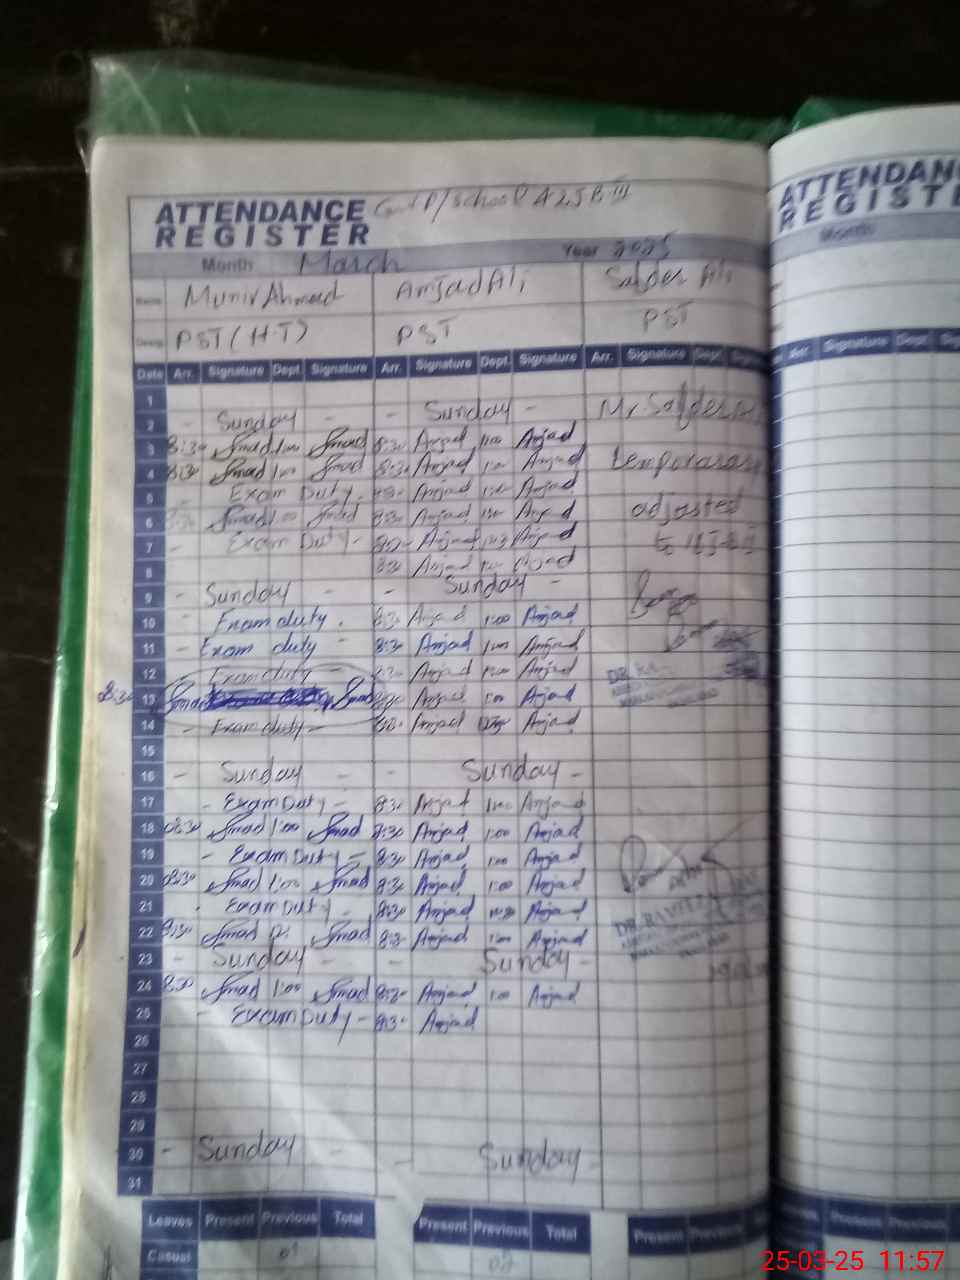 ATTENDANCE Govt P/School A25B III
REGISTER
Month March Year 2025
Name Munir Ahmad Amjad Ali Safder Ali
Desig: PST (H-T) PST PST
Date Arr. Signature Dept. Signature Arr. Signature Dept. Signature Arr. Signature Dept. Signature
1
2 - Sunday - - Sunday - Mr. Safder Ali
3 8:30 Smad 1:00 Smad 8:30 Amjad 1:00 Amjad
4 8:30 Smad 1:00 Smad 8:30 Amjad 1:00 Amjad temporarary
5 - Exam Duty - 8:30 Amjad 1:00 Amjad
6 8:30 Smad 1:00 Smad 8:30 Amjad 1:00 Amjad adjosted
7 - Exam Duty - 8:30 Amjad Amjad to
8 8:30 Amjad Amjad
9 - Sunday - - Sunday -
10 - Exam duty - 8:30 Amjad 1:00 Amjad
11 - Exam duty 8:30 Amjad 1:00 Amjad
12 - Exam duty - 8:30 Amjad 1:00 Amjad
13 08:30 Smad Smad 8:30 Amjad 1:00 Amjad
14 - Exam duty - 8:30 Amjad Amjad
15
16 - Sunday - - Sunday -
17 - Exam Duty - 8:30 Amjad 1:00 Amjad
18 08:30 Smad 1:00 Smad 8:30 Amjad 1:00 Amjad
19 - Exam Duty - 8:30 Amjad 1:00 Amjad
20 08:30 Smad 1:00 Smad 8:30 Amjad 1:00 Amjad
21 - Exam Duty - 8:30 Amjad Amjad
22 8:30 Smad 12: Smad 8:30 Amjad 1:00 Amjad
23 - Sunday - - Sunday -
24 8:30 Smad 1:00 Smad 8:30 Amjad 1:00 Amjad
25 - Exam Duty - 8:30 Amjad
26
27
28
29
30 - Sunday - - Sunday -
31
Leaves Present Previous Total Present Previous Total Present Previous
Casual 01 02
ATTENDANC
REGISTE
Month
Arr. Signature Dept. Sig
25-03-25 11:57